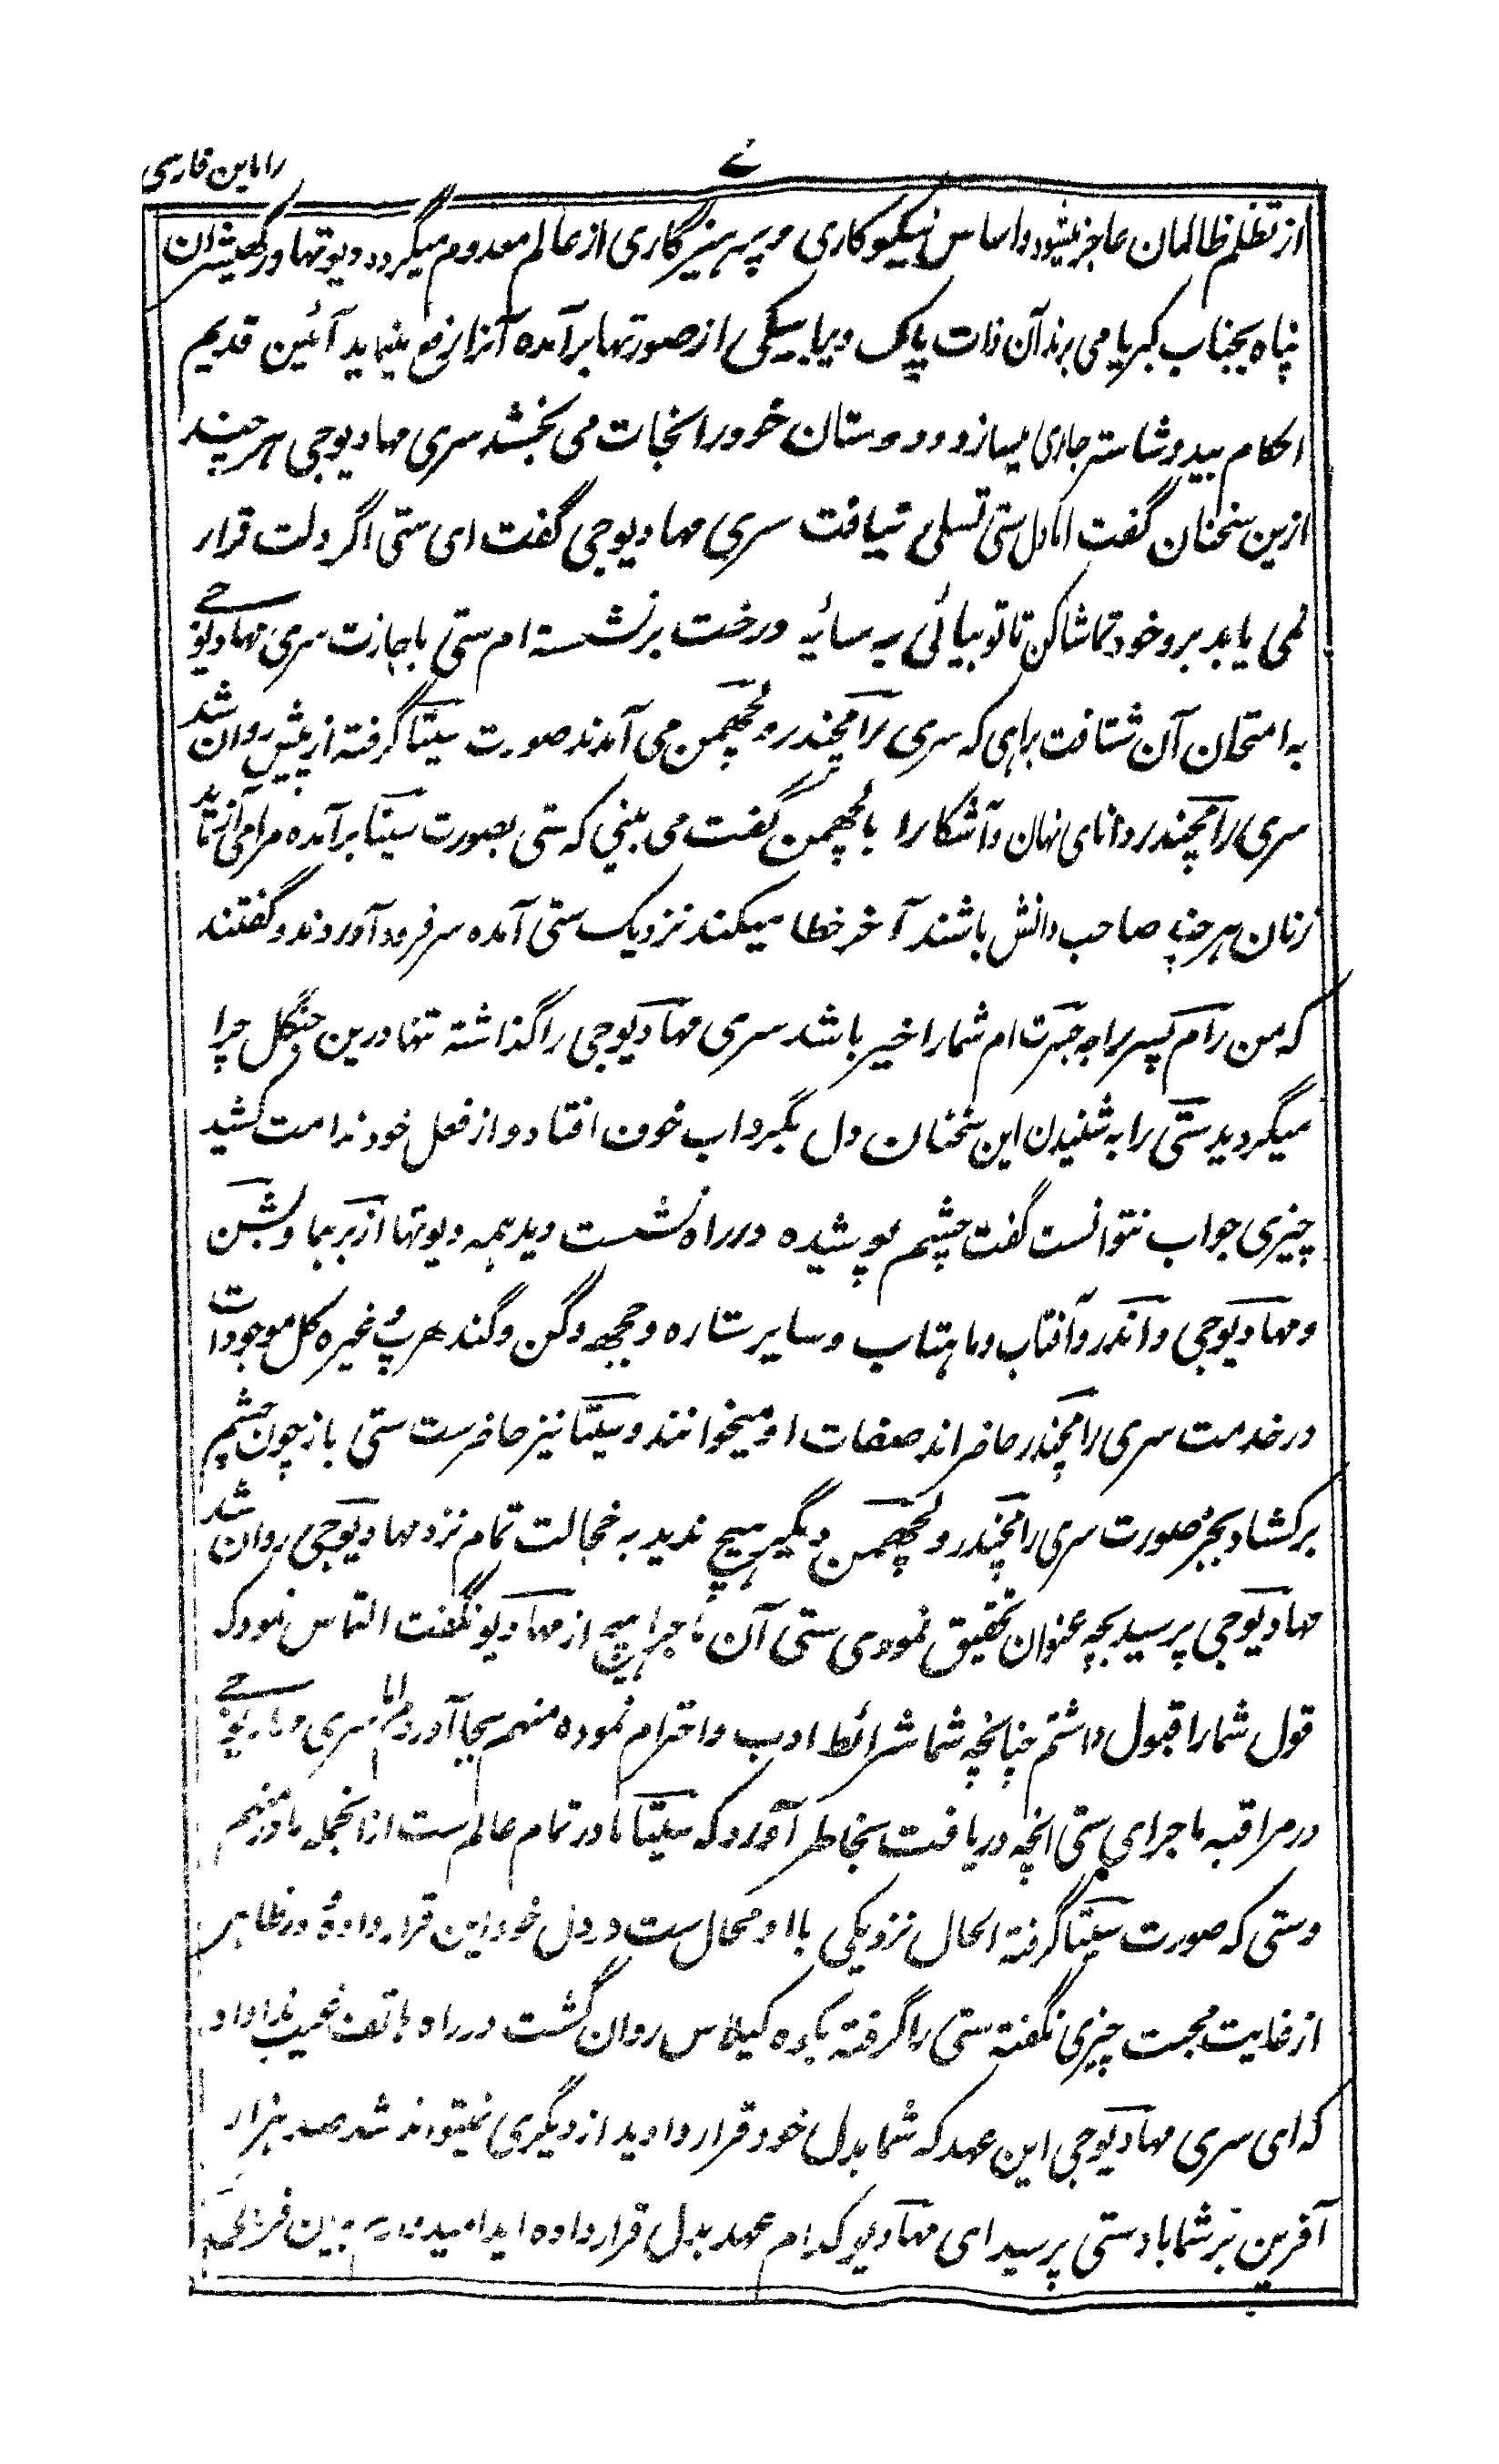 راماین فارسی
۷
از تظلم ظالمان عاجز میشود و اساس نیکوکاری و پرهیزگاری از عالم معدوم میگردد دیوتها و رکھیشران
پناه بجناب کبریا می برند آن ذات پاک و بیرا بیکی از صورتها برآمده آنرا رفع مینماید آئین قدیم
احکام بید و شاستر جاری میسازد و دوستان خود را نجات می بخشد سری مهادیوجی هر چند
ازین سخنان گفت اما دل ستی تسلی نیافت سری مهادیوجی گفت ای ستی اگر دلت قرار
نمی یابد برو خود تماشا کن تا تو بیائی به سایه درخت بر نشسته ام ستی باجازت سری مهادیوجی
به امتحان آن شتافت براهی که سری رامچندر و لچهمن می آمدند صورت سیتا گرفته از پیش روان شد
سری رامچندر دانای نهان و آشکارا با لچهمن گفت می بینی که ستی بصورت سیتا برآمده مرا می آزماید
زنان هر چند صاحب دانش باشند آخر خطا میکنند نزدیک ستی آمده سر فرود آوردند و گفتند
که من رام پسر راجه جسرت ام شما را خیر باشد سری مهادیوجی را گذاشته تنها درین جنگل چرا
میگردید ستی را به شنیدن این سخنان دل بگرداب خوف افتاد و از فعل خود ندامت کشید
چیزی جواب نتوانست گفت چشم پوشیده در راه نشست دید همه دیوتها از برمها و بشن
و مهادیوجی و اندر و آفتاب و ماهتاب و سایر ستاره و جچهه و گن و گندهرپ وغیره کل موجودات
در خدمت سری رامچندر حاضر اند صفات او میخوانند و سیتا نیز حاضرست ستی باز چون چشم
برکشاد بجز صورت سری رامچندر و لچهمن دیگر هیچ ندید به خجالت تمام نزد مهادیوجی روان شد
مهادیوجی پرسید بچه عنوان تحقیق نمودی ستی آن ماجرا هیچ از مهادیو نگفت التماس نمود که
قول شما را قبول داشتم چنانچه شما شرائط ادب و احترام نموده منهم بجا آوردم اما سری مهادیوجی
در مراقبه ماجرای ستی انچه دریافت بخاطر آورد که سیتا مادر تمام عالم ست ازانجمله مادر منهم
وستی که صورت سیتا گرفته الحال نزدیکی با او محال ست در دل خود این قرار داده در ظاهر
از غایت محبت چیزی نگفته ستی را گرفته بکوه کیلاس روان گشت در راه هاتف غیب ندا داد
که ای سری مهادیوجی این عهد که شما بدل خود قرار دادید از دیگری نمیتواند شد صد هزار
آفرین بر شما باد ستی پرسید ای مهادیو کدام عهد بدل قرار داده اید امیدوارم